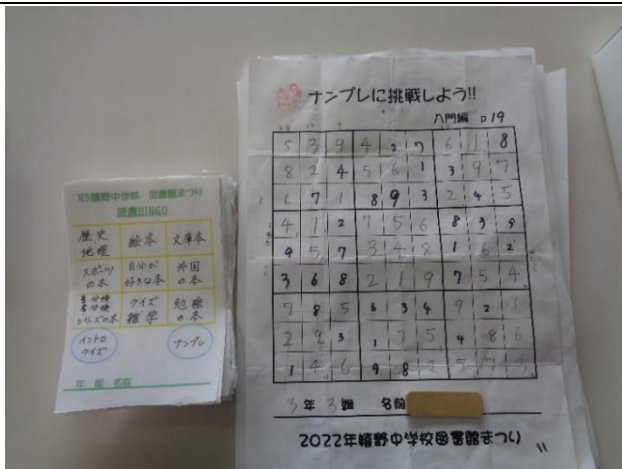 R5嬉野中学校 図書館まつり
読書BINGO
歴史 地理
絵本
文庫本
スポーツ の本
自分が 好きな本
外国 の本
シリーズの本
クイズ 雑学
勉強 の本
イントロ クイズ
ナンプレ
年 組 名前
ナンプレに挑戦しよう!!
入門編 P19
5 3 9 4 2 7 6 1 8
8 2 4 5 6 1 3 9 7
6 7 1 8 9 3 2 4 5
4 1 2 7 5 6 8 3 9
9 5 7 3 4 8 1 6 2
3 6 8 2 1 9 7 5 4
7 8 5 6 3 4 9 2 1
2 9 3 1 7 5 4 8 6
1 4 6 9 8 2 5
3年 3組 名前
2022年嬉野中学校図書館まつり